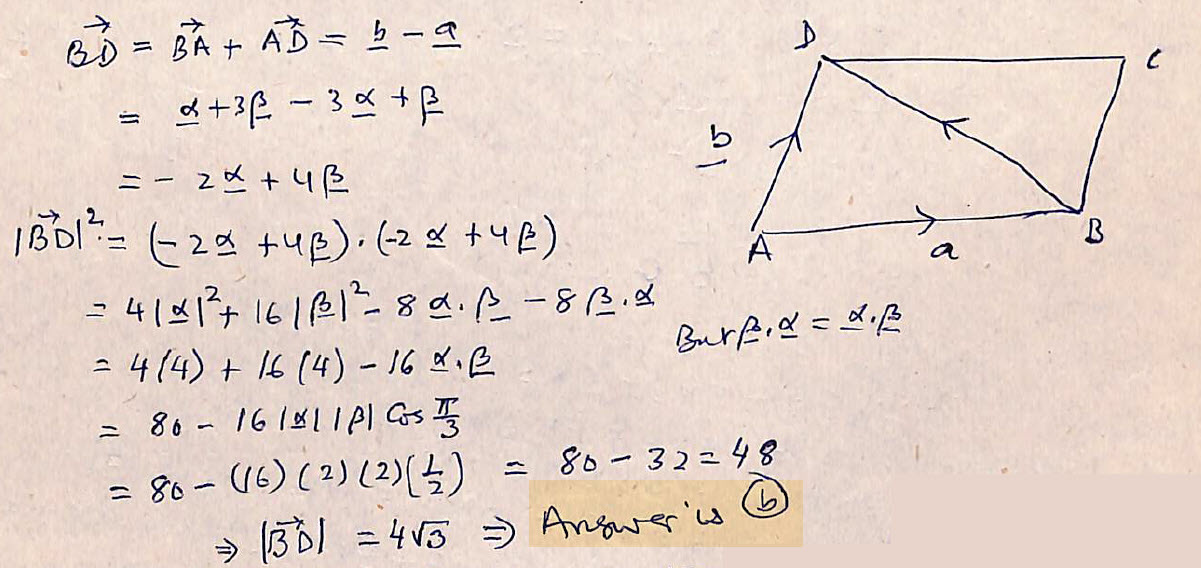 BD⃗ = BA⃗ + AD⃗ = b̲ - a̲
= α̲ + 3β̲ - 3α̲ + β̲
= - 2α̲ + 4β̲
|BD⃗|². = (-2α̲ + 4β̲).(-2α̲ + 4β̲)
= 4|α̲|² + 16|β̲|² - 8α̲.β̲ - 8β̲.α̲
But β̲.α̲ = α̲.β̲
= 4(4) + 16(4) - 16 α̲.β̲
= 80 - 16|α̲||β| Cos π/3
= 80 - (16)(2)(2)(1/2) = 80 - 32 = 48
⇒ |BD⃗| = 4√3 ⇒ Answer is (b)
D
C
b̲
A
a
B